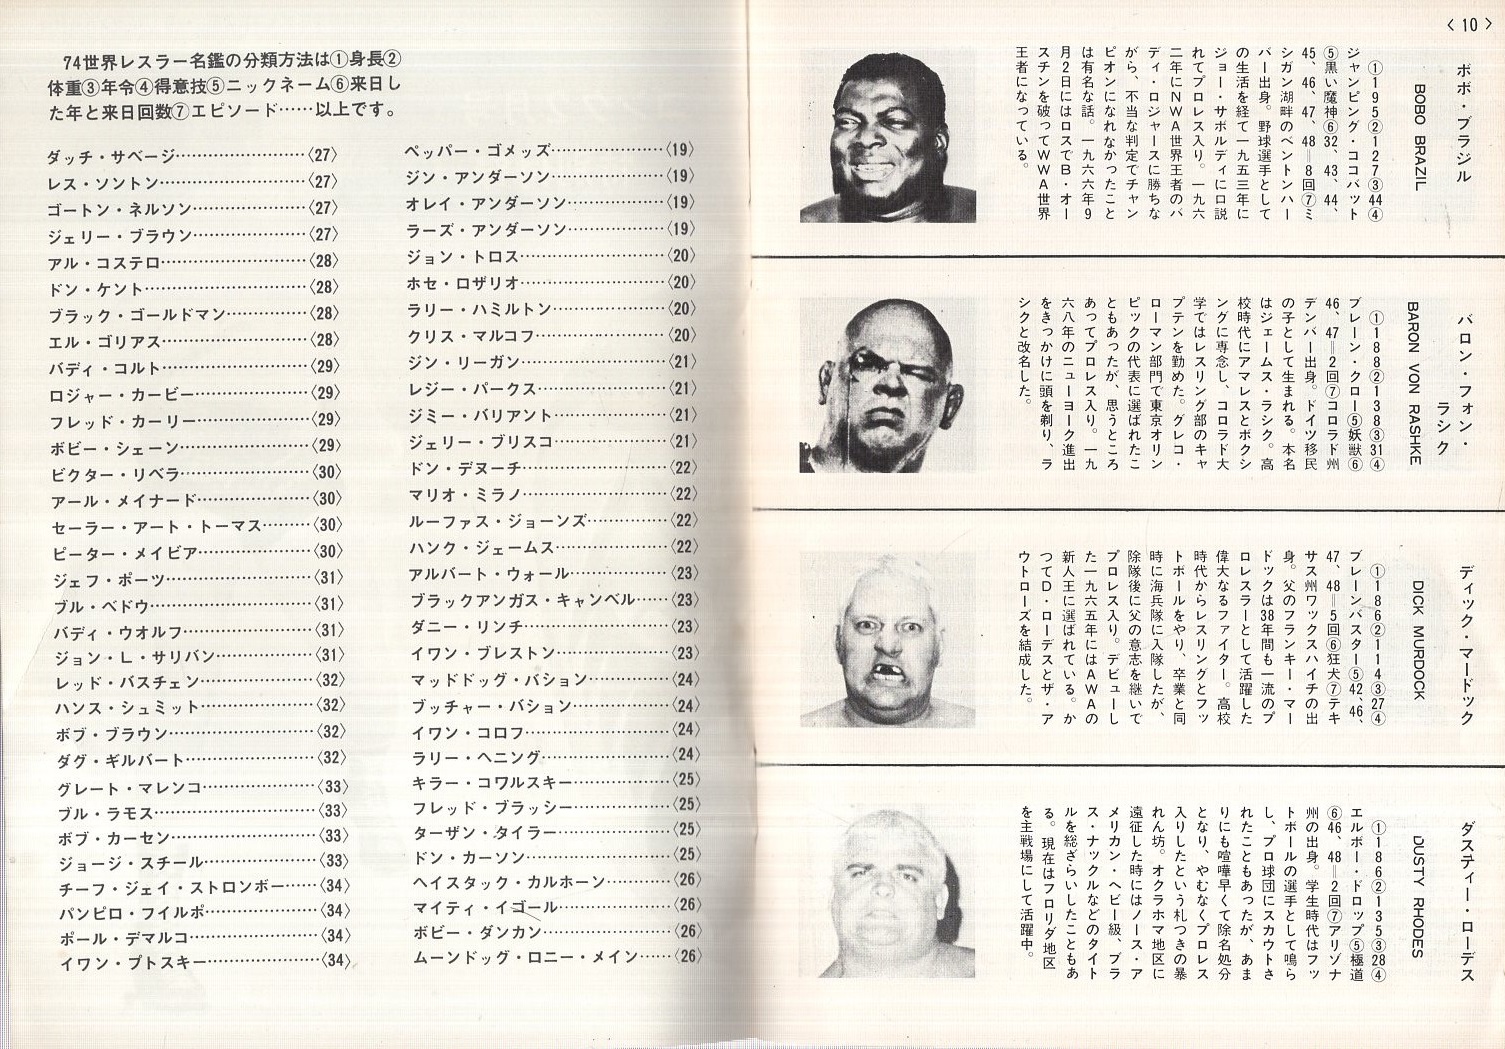 74世界レスラー名鑑の分類方法は①身長②
体重③年令④得意技⑤ニックネーム⑥来日し
た年と来日回数⑦エピソード……以上です。
ダッチ・サベージ……………………〈27〉
レス・ソントン………………………〈27〉
ゴートン・ネルソン…………………〈27〉
ジェリー・ブラウン…………………〈27〉
アル・コステロ………………………〈28〉
ドン・ケント…………………………〈28〉
ブラック・ゴールドマン……………〈28〉
エル・ゴリアス………………………〈28〉
バディ・コルト………………………〈29〉
ロジャー・カービー…………………〈29〉
フレッド・カーリー…………………〈29〉
ボビー・シェーン……………………〈29〉
ビクター・リベラ……………………〈30〉
アール・メイナード…………………〈30〉
セーラー・アート・トーマス………〈30〉
ピーター・メイビア…………………〈30〉
ジェフ・ポーツ………………………〈31〉
ブル・ベドウ…………………………〈31〉
バディ・ウオルフ……………………〈31〉
ジョン・L・サリバン………………〈31〉
レッド・バスチェン…………………〈32〉
ハンス・シュミット…………………〈32〉
ボブ・ブラウン………………………〈32〉
ダグ・ギルバート……………………〈32〉
グレート・マレンコ…………………〈33〉
ブル・ラモス…………………………〈33〉
ボブ・カーセン………………………〈33〉
ジョージ・スチール…………………〈33〉
チーフ・ジェイ・ストロンボー……〈34〉
パンピロ・フイルポ…………………〈34〉
ポール・デマルコ……………………〈34〉
イワン・プトスキー…………………〈34〉
ペッパー・ゴメッズ…………………〈19〉
ジン・アンダーソン…………………〈19〉
オレイ・アンダーソン………………〈19〉
ラーズ・アンダーソン………………〈19〉
ジョン・トロス………………………〈20〉
ホセ・ロザリオ………………………〈20〉
ラリー・ハミルトン…………………〈20〉
クリス・マルコフ……………………〈20〉
ジン・リーガン………………………〈21〉
レジー・パークス……………………〈21〉
ジミー・バリアント…………………〈21〉
ジェリー・ブリスコ…………………〈21〉
ドン・デヌーチ………………………〈22〉
マリオ・ミラノ………………………〈22〉
ルーファス・ジョーンズ……………〈22〉
ハンク・ジェームス…………………〈22〉
アルバート・ウォール………………〈23〉
ブラックアンガス・キャンベル……〈23〉
ダニー・リンチ………………………〈23〉
イワン・ブレストン…………………〈23〉
マッドドッグ・バション……………〈24〉
ブッチャー・バション………………〈24〉
イワン・コロフ………………………〈24〉
ラリー・ヘニング……………………〈24〉
キラー・コワルスキー………………〈25〉
フレッド・ブラッシー………………〈25〉
ターザン・タイラー…………………〈25〉
ドン・カーソン………………………〈25〉
ヘイスタック・カルホーン…………〈26〉
マイティ・イゴール…………………〈26〉
ボビー・ダンカン……………………〈26〉
ムーンドッグ・ロニー・メイン……〈26〉
〈10〉
ボボ・ブラジル
BOBO BRAZIL
①195②127③44④
ジャンピング・ココバット
⑤黒い魔神⑥32、43、44、
45、46、47、48＝8回⑦ミ
シガン湖畔のベントンハー
バー出身。野球選手として
の生活を経て一九五三年に
ジョー・サボルディに口説
れてプロレス入り。一九六
二年にNWA世界王者のバ
ディ・ロジャースに勝ちな
がら、不当な判定でチャン
ピオンになれなかったこと
は有名な話。一九六六年9
月2日にはロスでB・オー
スチンを破ってWWA世界
王者になっている。
バロン・フォン・
ラシク
BARON VON RASHKE
①188②138③31④
ブレーン・クロー⑤妖獣⑥
46、47＝2回⑦コロラド州
デンバー出身。ドイツ移民
の子として生まれる。本名
はジェームス・ラシク。高
校時代にアマレスとボクシ
ングに専念し、コロラド大
学ではレスリング部のキャ
プテンを勤めた。グレコ・
ローマン部門で東京オリン
ピックの代表に選ばれたこ
ともあったが、思うところ
あってプロレス入り。一九
六八年のニューヨーク進出
をきっかけに頭を剃り、ラ
シクと改名した。
ディック・マードック
DICK MURDOCK
①186②114③27④
ブレーンバスター⑤42、46、
47、48＝5回⑥狂犬⑦テキ
サス州ワックスハイチの出
身。父のフランキー・マー
ドックは38年間も一流のプ
ロレスラーとして活躍した
偉大なるファイター。高校
時代からレスリングとフッ
トボールをやり、卒業と同
時に海兵隊に入隊したが、
除隊後に父の意志を継いで
プロレス入り。デビューし
た一九六五年にはAWAの
新人王に選ばれている。か
つてD・ローデスとザ・ア
ウトローズを結成した。
ダスティー・ローデス
DUSTY RHODES
①186②135③28④
エルボー・ドロップ⑤極道
⑥46、48＝2回⑦アリゾナ
州の出身。学生時代はフッ
トボールの選手として鳴ら
し、プロ球団にスカウトさ
れたこともあったが、あま
りにも喧嘩早くて除名処分
となり、やむなくプロレス
入りしたという札つきの暴
れん坊。オクラホマ地区に
遠征した時にはノース・ア
メリカン・ヘビー級、ブラ
ス・ナックルなどのタイト
ルを総ざらいしたこともあ
る。現在はフロリダ地区
を主戦場にして活躍中。